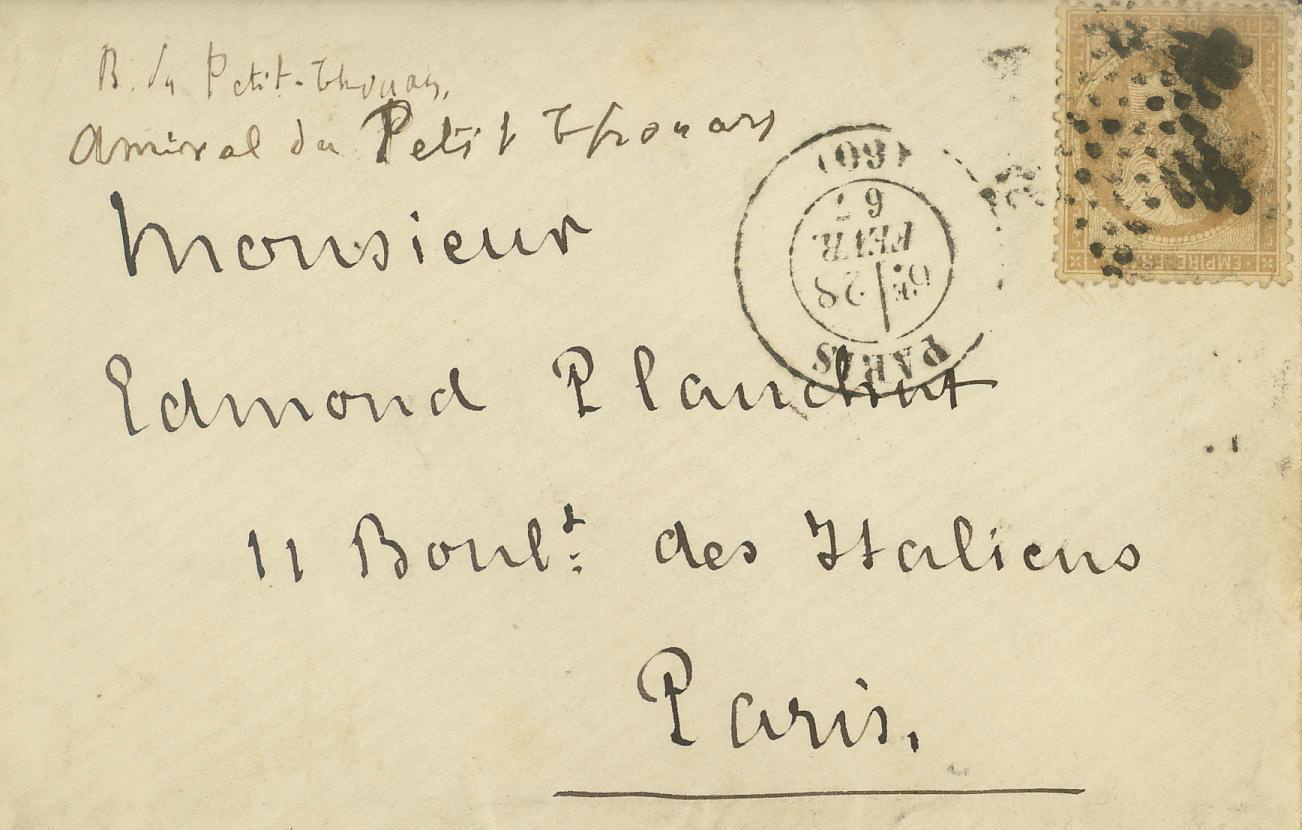 B. du Petit-Thouars,
Amiral du Petit Thouars
Monsieur
Edmond Planchut
11 Boult. des Italiens
Paris.
PARIS
6E 28
FEVR.
67
(60)
EMPIRE
POSTES